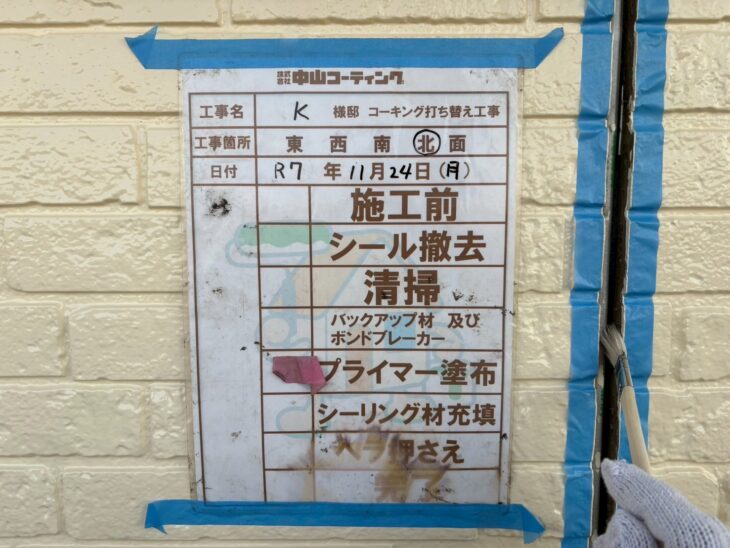 株式会社 中山コーティング
工事名 K 様邸 コーキング打ち替え工事
工事箇所 東 西 南 北 面
日付 R7 年 11月 24日 (月)
施工前
シール撤去
清掃
バックアップ材 及び
ボンドブレーカー
プライマー塗布
シーリング材充填
ヘラ押さえ